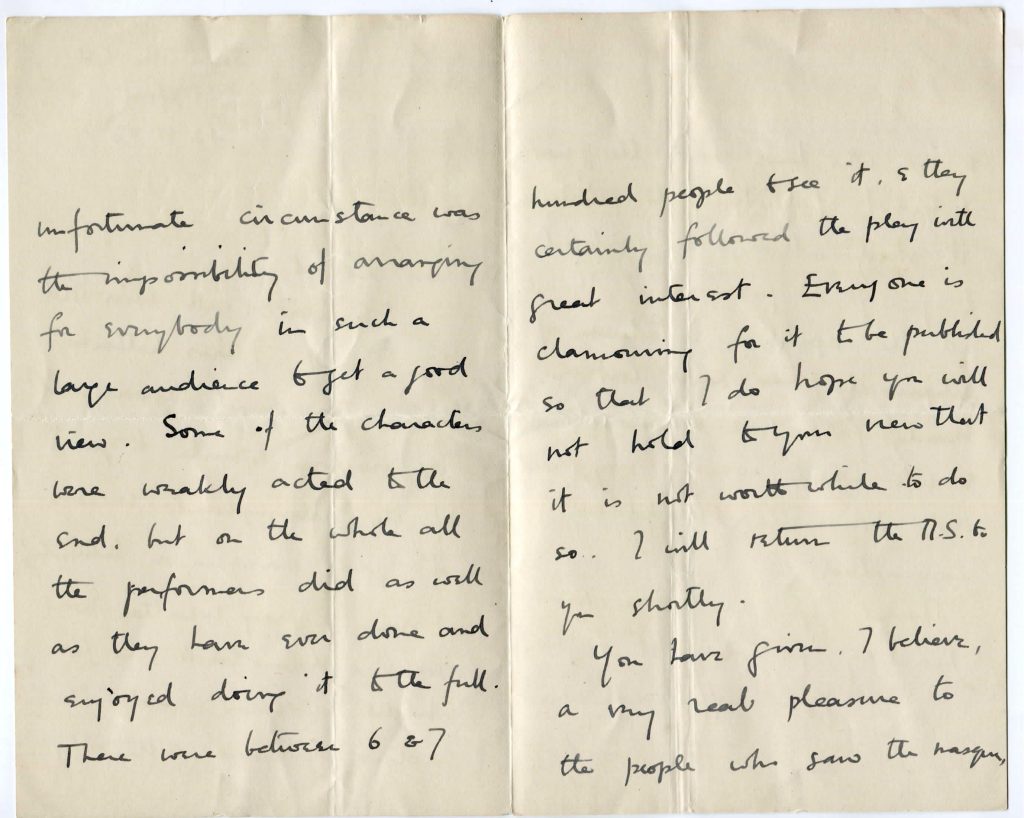 unfortunate circumstance was
the impossibility of arranging
for everybody in such a
large audience to get a good
view. Some of the characters
were weakly acted to the
end, but on the whole all
the performers did as well
as they have ever done and
enjoyed doing it to the full.
There were between 6 & 7
hundred people to see it, & they
certainly followed the play with
great interest. Everyone is
clamouring for it to be published
so that I do hope you will
not hold to your view that
it is not worth while to do
so.. I will return the M.S. to
you shortly.
You have given, I believe,
a very real pleasure to
the people who saw the masque,